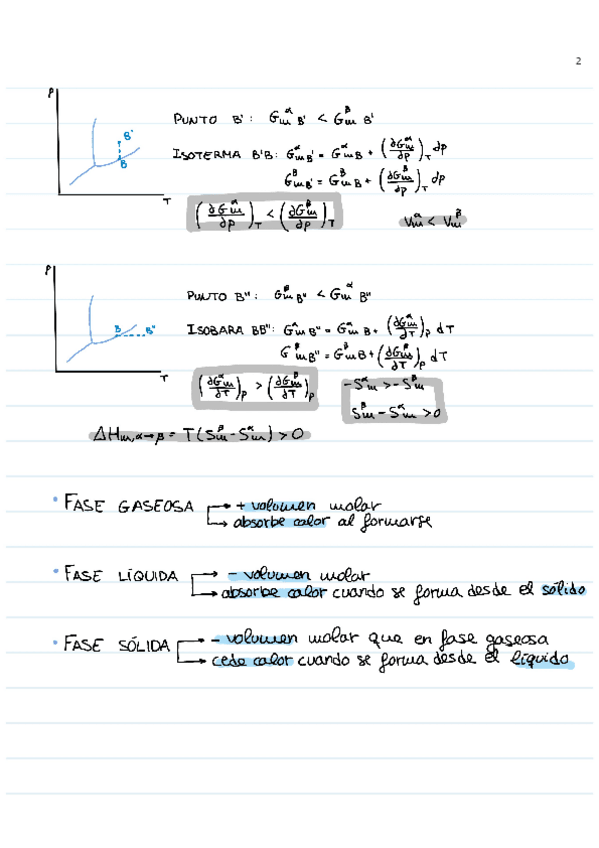 2
P
PUNTO B': Gm^α B' < Gm^β B'
B'
ISOTERMA B'B: Gm^α B' = Gm^α B + (∂Gm^α/∂p)_T dp
B
Gm^β B' = Gm^β B + (∂Gm^β/∂p)_T dp
T
(∂Gm^α/∂p)_T < (∂Gm^β/∂p)_T
Vm^α < Vm^β
P
PUNTO B'': Gm^β B'' < Gm^α B''
B B''
ISOBARA BB'': Gm^α B'' = Gm^α B + (∂Gm^α/∂T)_P dT
Gm^β B'' = Gm^β B + (∂Gm^β/∂T)_P dT
T
(∂Gm^α/∂T)_P > (∂Gm^β/∂T)_P
-Sm^α > -Sm^β
Sm^β - Sm^α > 0
ΔHm,α→β = T(Sm^β - Sm^α) > 0
• FASE GASEOSA → + volumen molar
→ absorbe calor al formarse
• FASE LÍQUIDA → - volumen molar
→ absorbe calor cuando se forma desde el sólido
• FASE SÓLIDA → - volumen molar que en fase gaseosa
→ cede calor cuando se forma desde el líquido